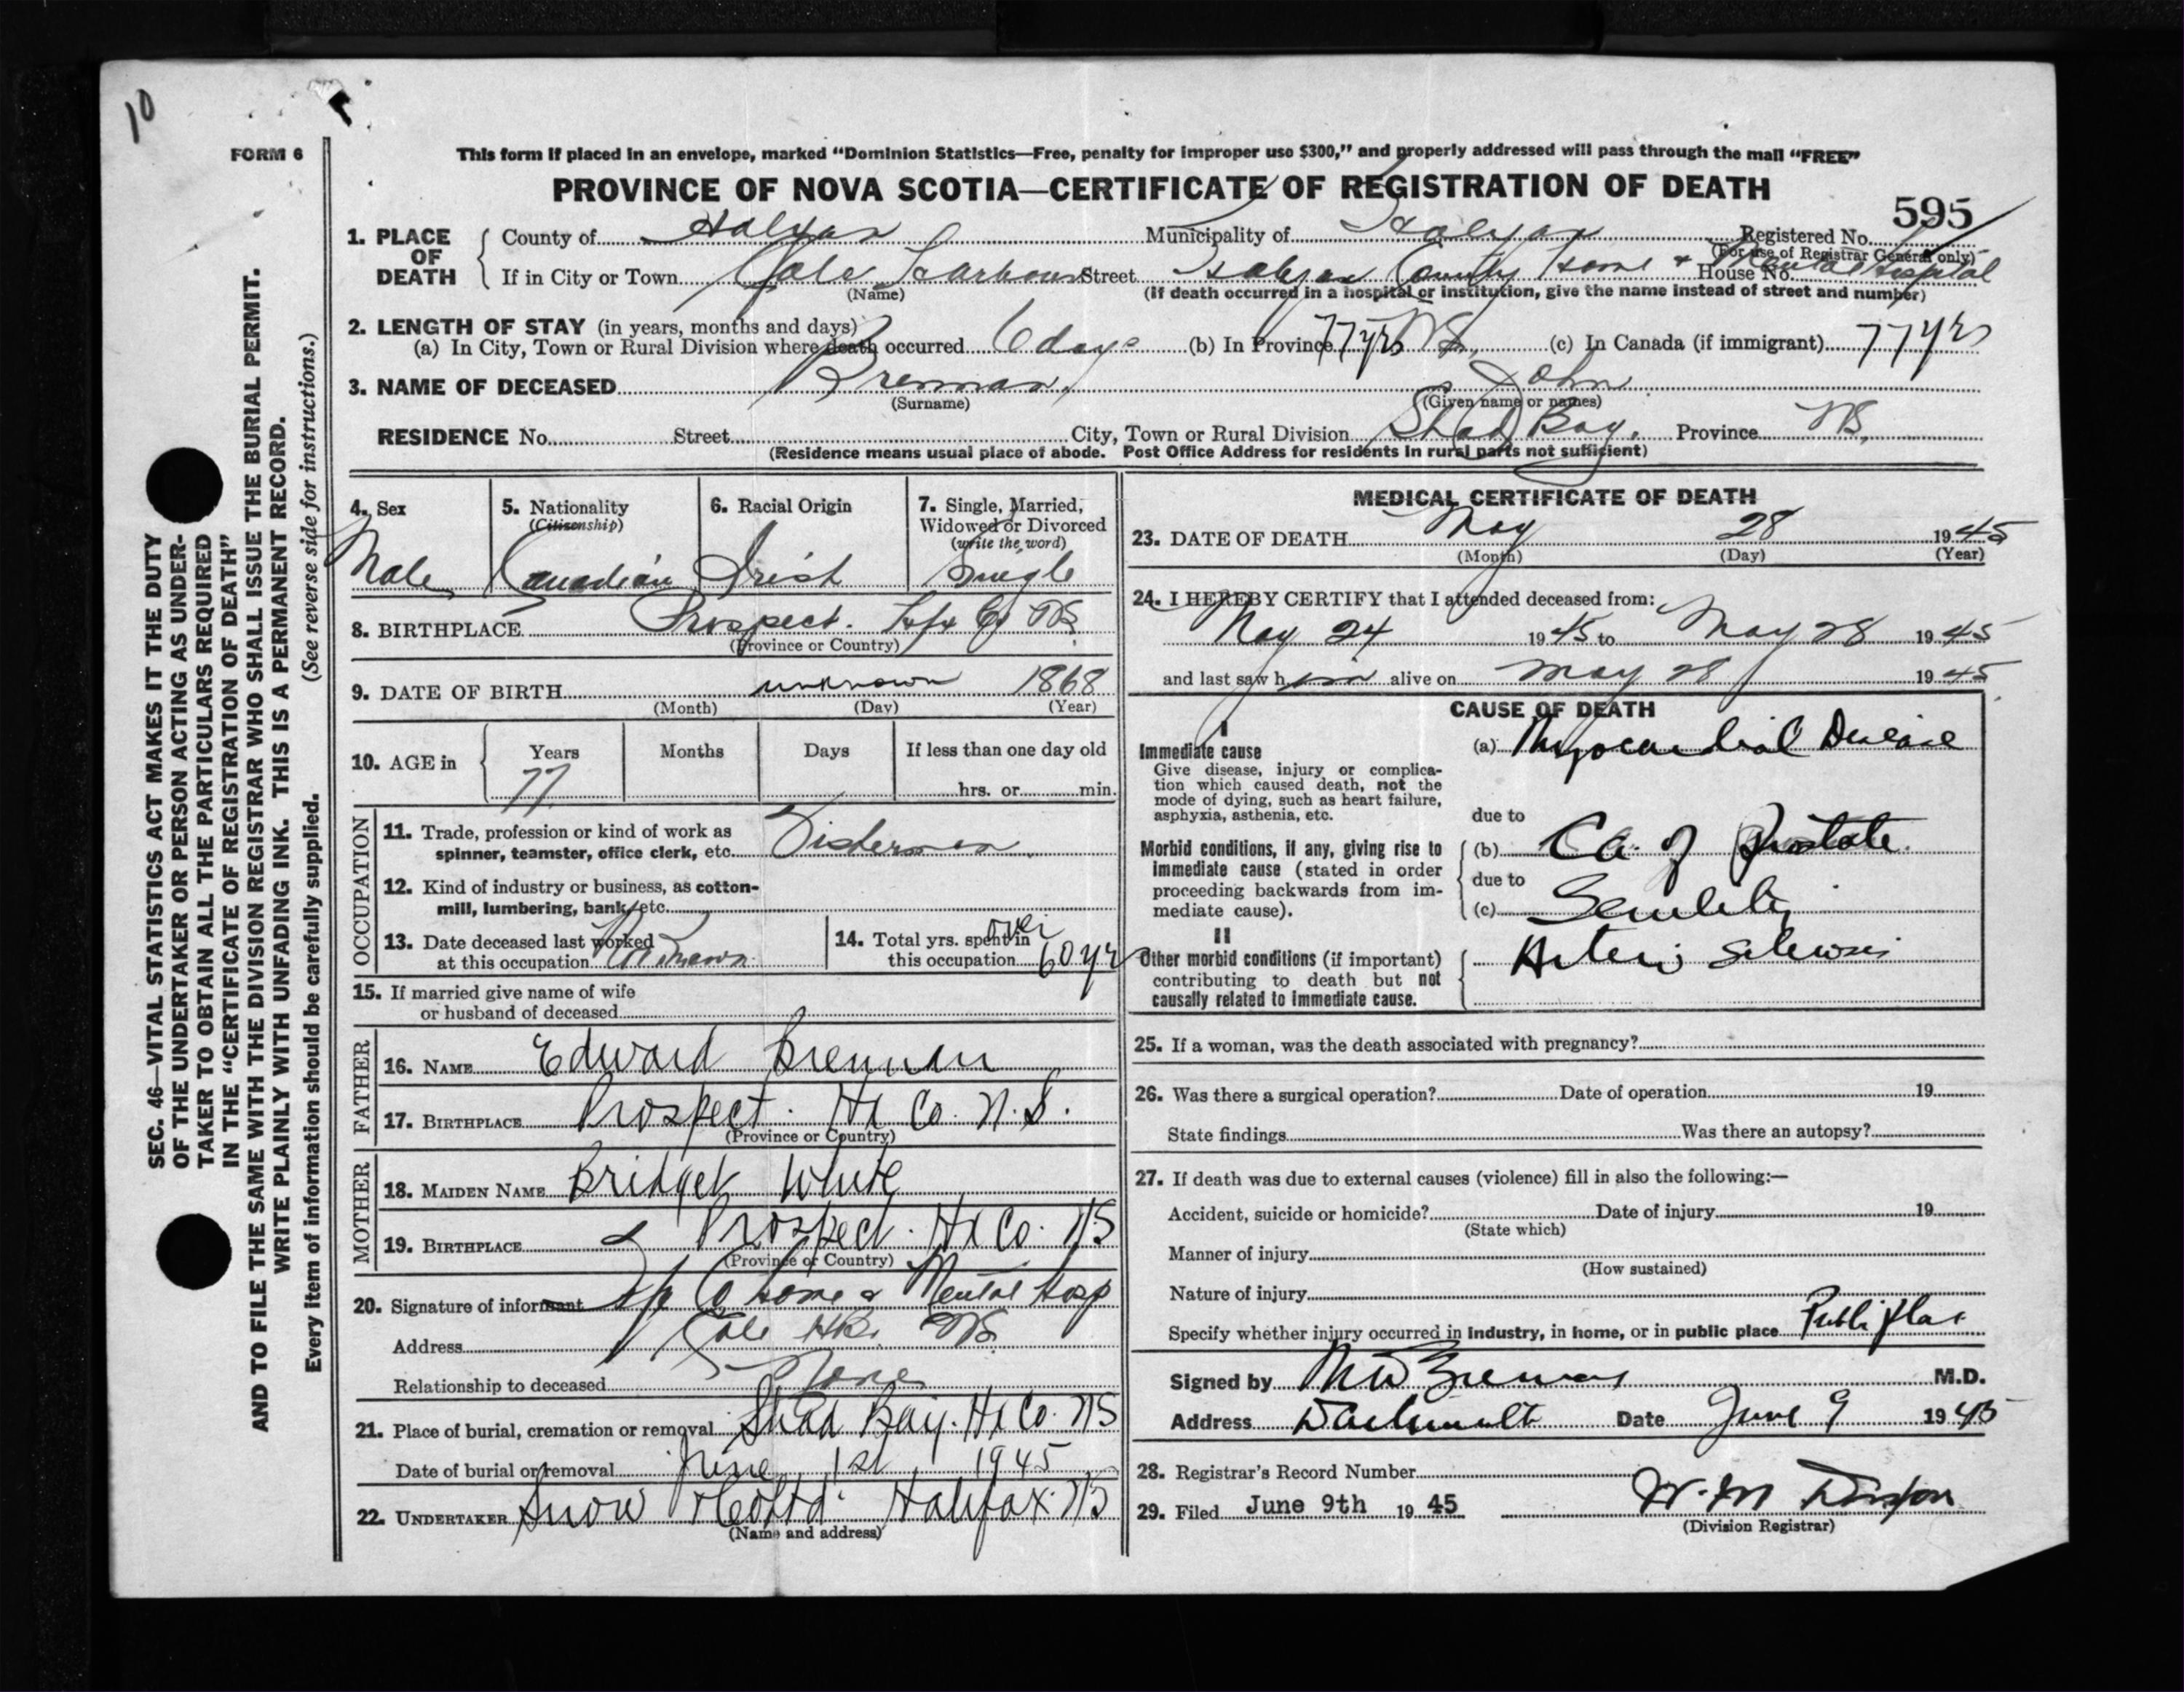 10
FORM 6
This form if placed in an envelope, marked "Dominion Statistics—Free, penalty for improper use $300," and properly addressed will pass through the mail "FREE"
PROVINCE OF NOVA SCOTIA—CERTIFICATE OF REGISTRATION OF DEATH
595
1. PLACE OF DEATH
County of Halifax Municipality of Halifax Registered No.
(For use of Registrar General only)
If in City or Town Cole Harbour Street Halifax County Home & Mental Hospital House No.
(Name) (If death occurred in a hospital or institution, give the name instead of street and number)
2. LENGTH OF STAY (in years, months and days)
(a) In City, Town or Rural Division where death occurred 6 days (b) In Province 77 yrs NS, (c) In Canada (if immigrant) 77 yrs
3. NAME OF DECEASED Brennan, John
(Surname) (Given name or names)
RESIDENCE No. Street City, Town or Rural Division Shad Bay. Province NS,
(Residence means usual place of abode. Post Office Address for residents in rural parts not sufficient)
4. Sex
Male
5. Nationality
(Citizenship)
Canadian
6. Racial Origin
Irish
7. Single, Married,
Widowed or Divorced
(write the word)
Single
8. BIRTHPLACE Prospect. Hfx Co NS
(Province or Country)
9. DATE OF BIRTH unknown 1868
(Month) (Day) (Year)
10. AGE in Years Months Days If less than one day old
77 hrs. or min.
OCCUPATION
11. Trade, profession or kind of work as
spinner, teamster, office clerk, etc. Fisherman
12. Kind of industry or business, as cotton-
mill, lumbering, bank, etc.
13. Date deceased last worked
at this occupation Unknown
14. Total yrs. spent in
this occupation over 60 yr
15. If married give name of wife
or husband of deceased
FATHER
16. NAME Edward Brennan
17. BIRTHPLACE Prospect. Hx Co. N.S.
(Province or Country)
MOTHER
18. MAIDEN NAME Bridget White
19. BIRTHPLACE Prospect. Hx Co. NS
(Province or Country)
20. Signature of informant Hfx Co Home & Mental Hosp
Address Cole Hbr. NS.
Relationship to deceased None
21. Place of burial, cremation or removal Shad Bay. Hx Co. NS
Date of burial or removal June 1st 1945
22. UNDERTAKER Snow & Co Ltd. Halifax. NS
(Name and address)
MEDICAL CERTIFICATE OF DEATH
23. DATE OF DEATH May 28 1945
(Month) (Day) (Year)
24. I HEREBY CERTIFY that I attended deceased from:
May 24 1945 to May 28 1945
and last saw him alive on May 28 1945
CAUSE OF DEATH
I
Immediate cause
Give disease, injury or complica-
tion which caused death, not the
mode of dying, such as heart failure,
asphyxia, asthenia, etc.
(a) Myocardial Disease
due to
Morbid conditions, if any, giving rise to
immediate cause (stated in order
proceeding backwards from im-
mediate cause).
(b) Ca. of Prostate.
due to
(c) Senility
II
Other morbid conditions (if important)
contributing to death but not
causally related to immediate cause.
Arterio Sclerosis
25. If a woman, was the death associated with pregnancy?
26. Was there a surgical operation? Date of operation 19
State findings Was there an autopsy?
27. If death was due to external causes (violence) fill in also the following:—
Accident, suicide or homicide? Date of injury 19
(State which)
Manner of injury
(How sustained)
Nature of injury
Specify whether injury occurred in industry, in home, or in public place Public place
Signed by M.D.
Address Dartmouth Date June 9 1945
28. Registrar's Record Number
29. Filed June 9th 1945 W. M.
(Division Registrar)
SEC. 46—VITAL STATISTICS ACT MAKES IT THE DUTY
OF THE UNDERTAKER OR PERSON ACTING AS UNDER-
TAKER TO OBTAIN ALL THE PARTICULARS REQUIRED
IN THE "CERTIFICATE OF REGISTRATION OF DEATH"
AND TO FILE THE SAME WITH THE DIVISION REGISTRAR WHO SHALL ISSUE THE BURIAL PERMIT.
WRITE PLAINLY WITH UNFADING INK. THIS IS A PERMANENT RECORD.
Every item of information should be carefully supplied. (See reverse side for instructions.)